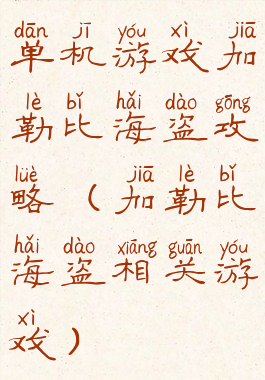 dān jī yóu xì jiā
单机游戏加
lè bǐ hǎi dào gōng
勒比海盗攻
lüè jiā lè bǐ
略（加勒比
hǎi dào xiāng guān yóu
海盗相关游
xì
戏）